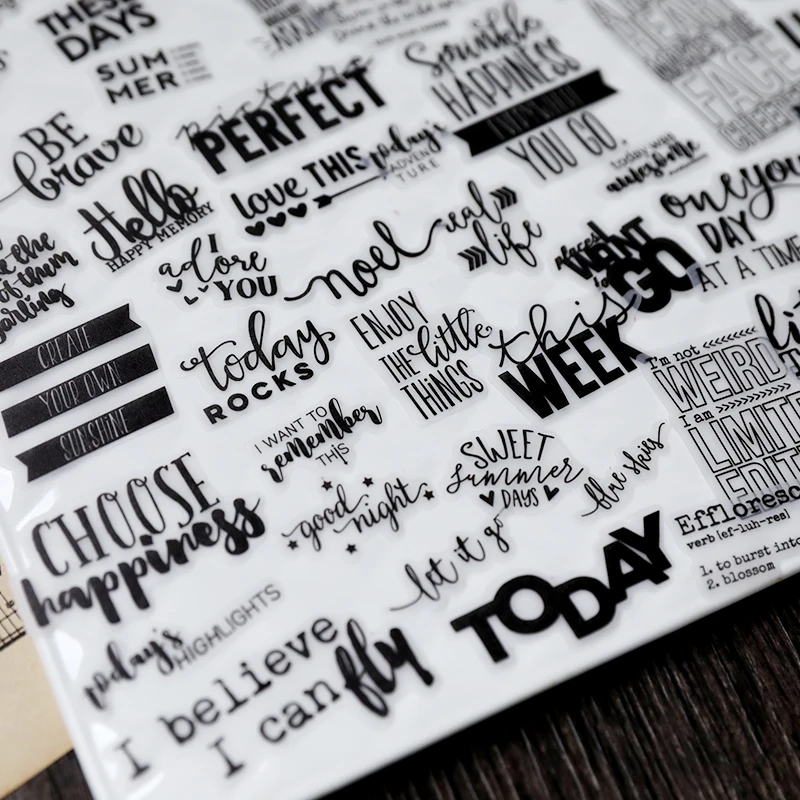 THESE
DAYS
SUM
MER
picture
PERFECT
Sprinkle
HAPPINESS
YOU GO.
FACE
BE
brave
Hello
HAPPY MEMORY
love THIS
today's
ADVEN
TURE
today was
awesome
only
DAY
AT A TIME
of them
darling
I
adore
YOU
noel
real
life
places I
WANT
to
GO
CREATE
YOUR OWN
SUNSHINE
today
ROCKS
ENJOY
THE little
THINGS
this
WEEK
I'm not
WEIRD
I am
LIMITED
EDITI
I WANT TO
remember
THIS
SWEET
summer
DAYS
blue skies
CHOOSE
happiness
good
night
let it go
TODAY
Effloresc
verb [ef-luh-res]
1. to burst into
2. blossom
today's
HIGHLIGHTS
I believe
I can fly